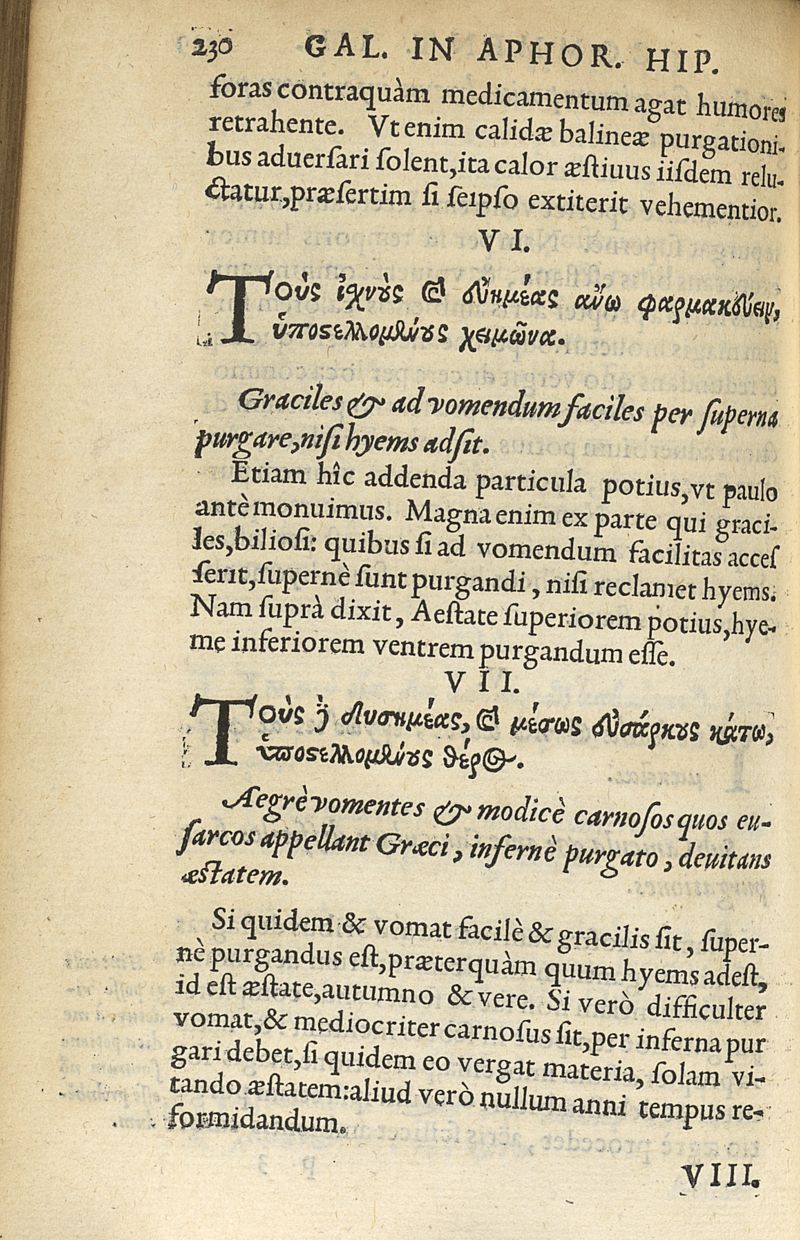 230 GAL. IN APHOR. HIP.
foras contraquàm medicamentum agat humores
retrahente. Vt enim calidæ balineæ purgationi-
bus aduerſari ſolent,ita calor æſtiuus iiſdem relu-
ctatur,præſertim ſi ſeipſo extiterit vehementior.
VI.
Τοὺς ἰχνοὺς καὶ εὐημέας ἄνω φαρμακεύειν,
ὑποστελλομένους χειμῶνα.
Graciles & ad vomendum faciles per ſuperna
purgare,niſi hyems adſit.
Etiam hîc addenda particula potius,vt paulo
antè monuimus. Magna enim ex parte qui graci-
les,bilioſi: quibus ſi ad vomendum facilitas acceſ
ſerit,ſupernè ſunt purgandi, niſi reclamet hyems.
Nam ſuprà dixit, Aeſtate ſuperiorem potius,hye-
me inferiorem ventrem purgandum eſſe.
VII.
Τοὺς δὲ δυσημέας, καὶ μέσως εὐσάρκους κάτω,
ὑποστελλομένους θέρος.
Aegrè vomentes & modicè carnoſos quos eu-
ſarcos appellant Græci, infernè purgato, deuitans
æſtatem.
Si quidem & vomat facilè & gracilis ſit, ſuper-
nè purgandus eſt,præterquàm quum hyems adeſt,
id eſt æſtate,autumno & vere. Si verò difficulter
vomat,& mediocriter carnoſus ſit,per inferna pur
gari debet,ſi quidem eo vergat materia, ſolam vi-
tando æſtatem:aliud verò nullum anni tempus re-
formidandum.
VIII.